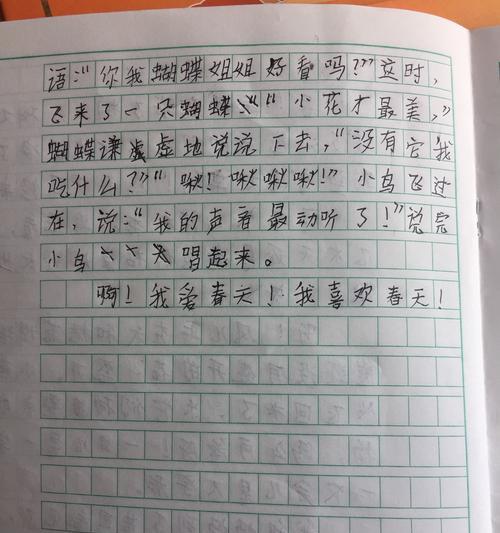 语:“你我蝴蝶姐姐好看吗?”这时,
飞来了一只蝴蝶,“小花才最美,”
蝴蝶谦虚地说说下去,“没有它我
吃什么?”“啾!啾啾啾!”小鸟飞过
在,说:“我的声音最动听了!”说完
小鸟唱起来。
啊!我爱春天!我喜欢春天!